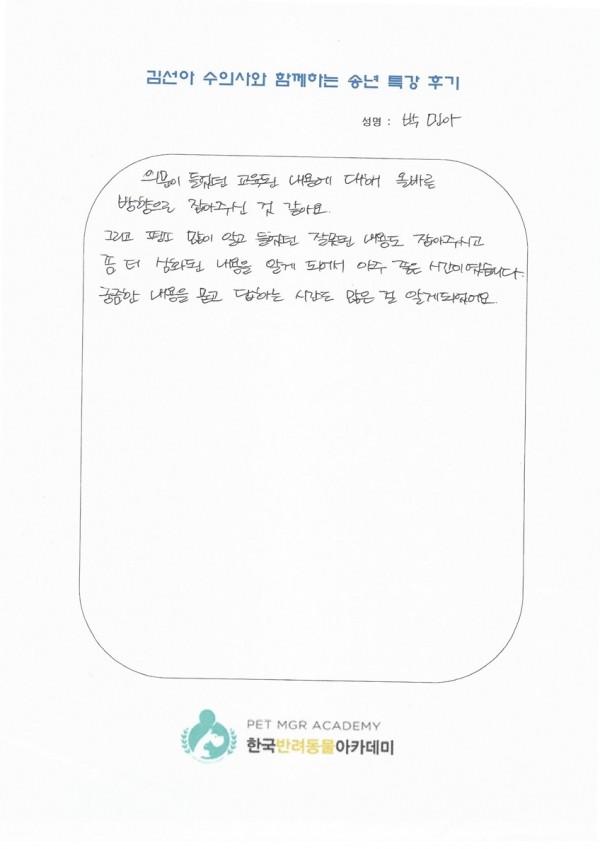 김선아 수의사와 함께하는 송년 특강 후기
성명 : 박 민아
의문이 들었던 교육된 내용에 대해 올바른
방향으로 잡아주신 것 같아요.
그리고 평소 많이 알고 들었던 잘못된 내용도 잡아주시고
좀 더 심화된 내용을 알게 되어서 아주 좋은 시간이였습니다.
궁금한 내용을 묻고 답하는 시간도 많은 걸 알게되었어요.
PET MGR ACADEMY
한국반려동물아카데미